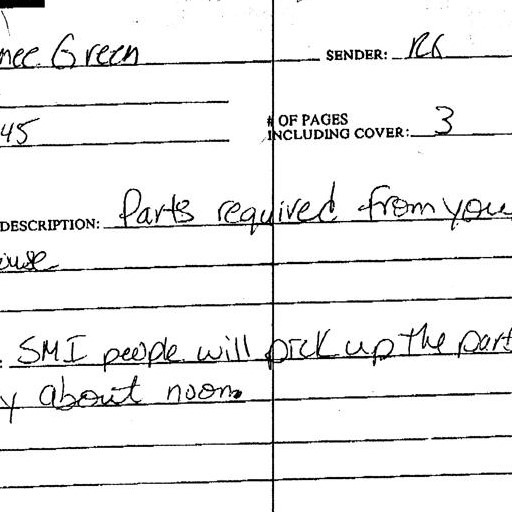 nee Green SENDER: RK
45 # OF PAGES
INCLUDING COVER: 3
DESCRIPTION: Parts required from you
ouse
: SMI people will pick up the part
y about noon.